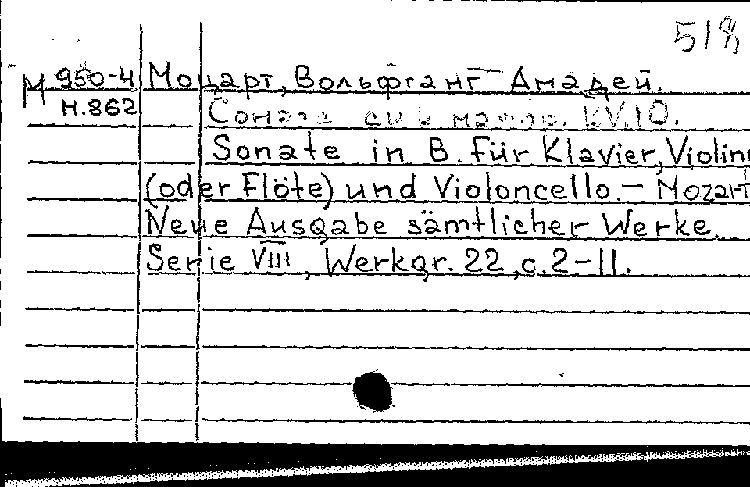 518
М 950-4 Моцарт, Вольфганг Амадей.
Н.862 Соната си b мажор. KV.10.
Sonate in B. für Klavier, Violine
(oder Flöte) und Violoncello. – Mozart
Neue Ausgabe sämtlicher Werke.
Serie VIII, Werkgr. 22, с. 2–11.